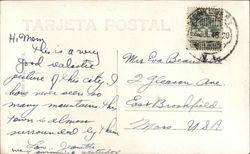 TARJETA POSTAL
Hi, Mom,
this is a very
good realastic
picture of this city, I
have never seen so
many mountains. This
town is almost
surrounded by them
Mrs Eva Beau
2 Gleason Ave.
East Brookfield
Mass. USA